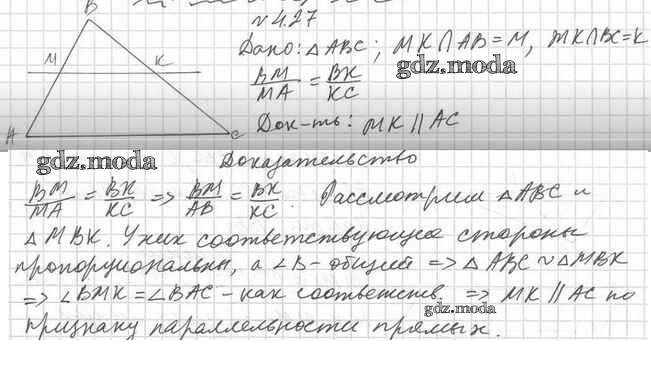 B
№4.27
Дано: △ABC; MK∩AB=M, MK∩BC=K
M K
BM/MA = BK/KC
gdz.moda
Док-ть: MK || AC
A C
gdz.moda
Доказательство
BM/MA = BK/KC => BM/AB = BK/KC. Рассмотрим △ABC и
△MBK. У них соответствующие стороны
пропорциональны, а ∠B - общий => △ABC ~ △MBK
=> ∠BMK = ∠BAC - как соответств. => MK || AC по
gdz.moda
признаку параллельности прямых.